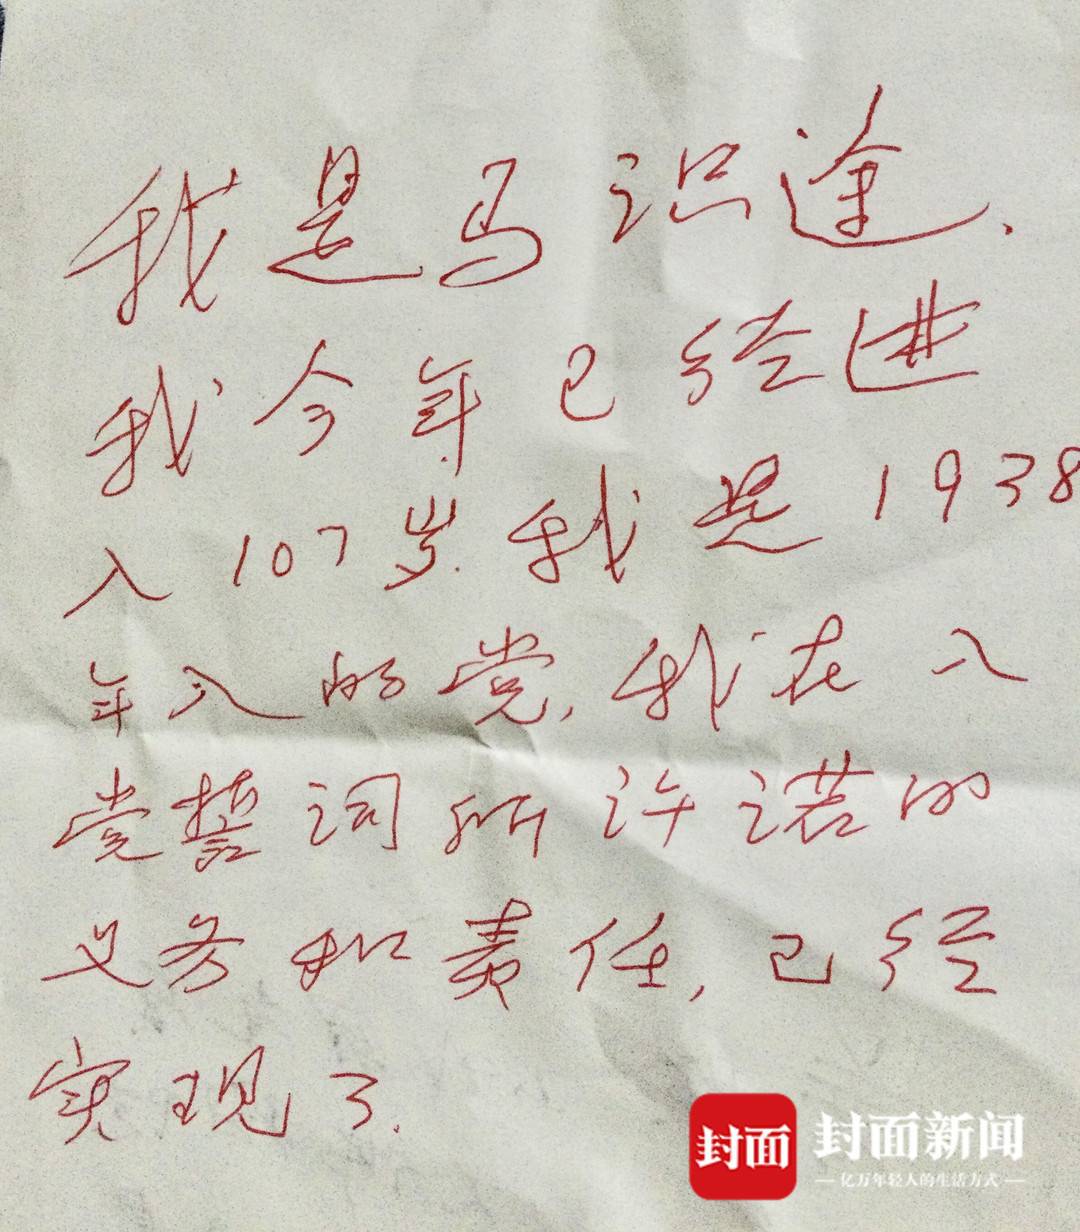 我是马识途.
我今年已经进
入107岁.我是1938
年入的党,我在入
党誓词所许诺的
义务和责任,已经
实现了.
封面
封面新闻
亿万年轻人的生活方式